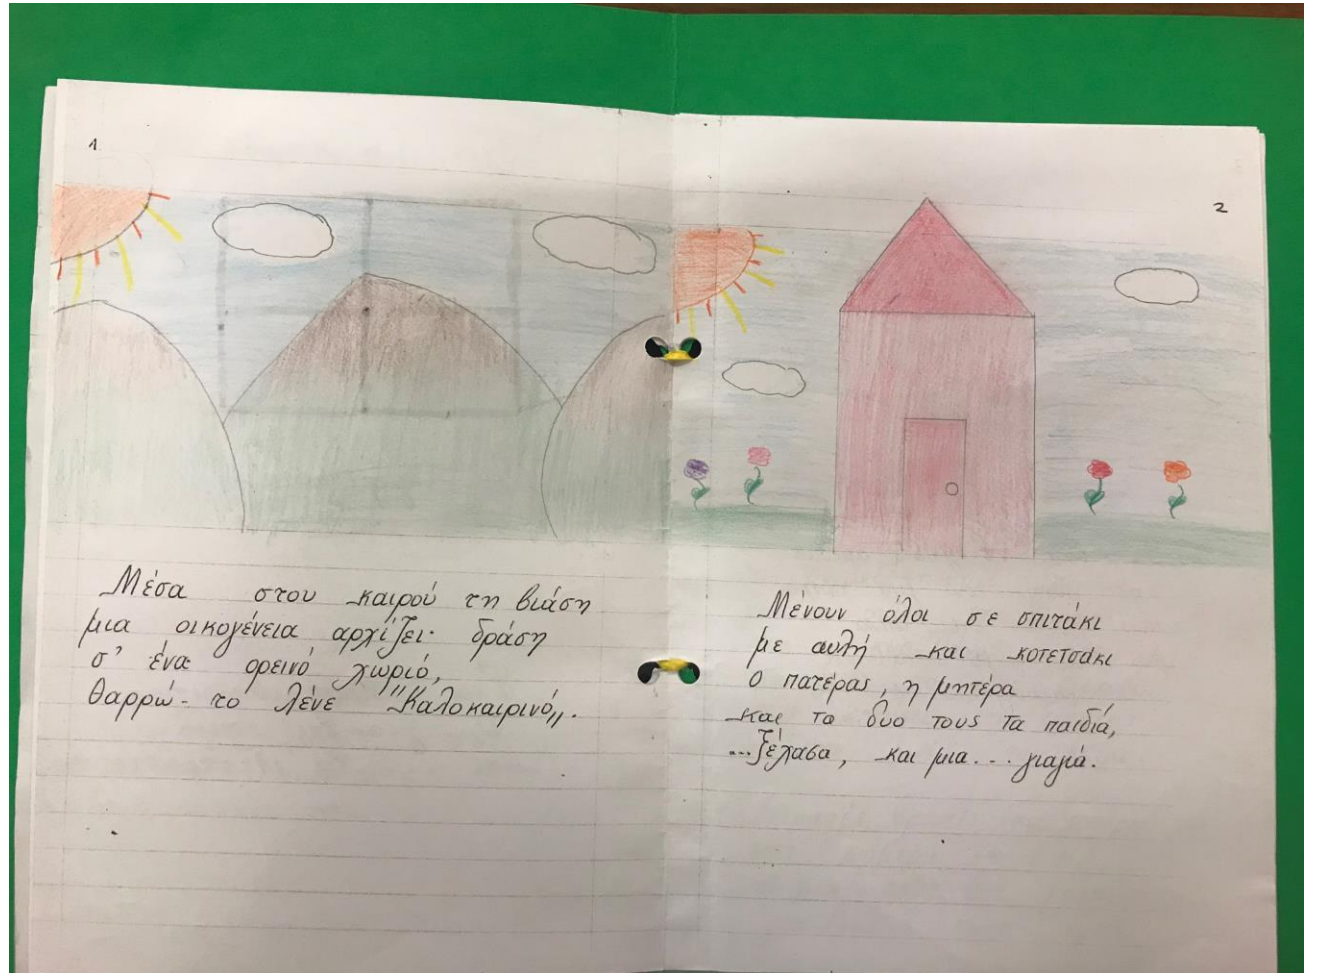 1
Μέσα στου καιρού τη βιάση
μια οικογένεια αρχίζει δράση
σ' ένα ορεινό χωριό,
θαρρώ το λένε "Καλοκαιρινό,,.
2
Μένουν όλοι σε σπιτάκι
με αυλή και κοτετσάκι
ο πατέρας, η μητέρα
και τα δυο τους τα παιδιά,
...ξέχασα, και μια... γιαγιά.